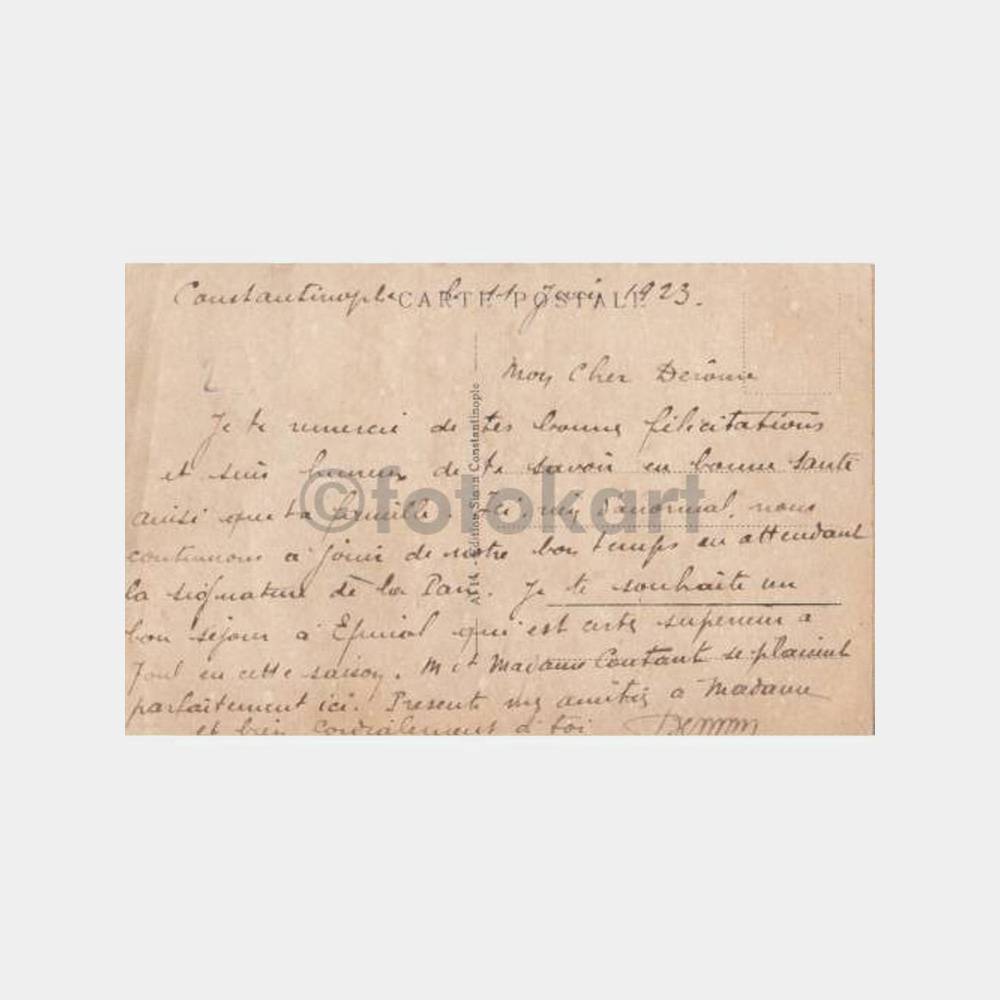 Constantinople le 11 1923.
CARTE POSTALE
2
Mon Cher Derôme
Je te remercie de tes bonnes félicitations
et suis heureux de te savoir en bonne santé
ainsi que ta famille. Ici, rien d'anormal, nous
continuons à jouir de notre bon temps en attendant
la signature de la Paix. Je te souhaite un
bon séjour à Epinal qui est certes superieur à
Toul en cette saison. M et Madame Coutant se plaisent
parfaitement ici. Presente mes amitiés à Madame
et bien cordialement à toi
Edition Constantinople
©fotokart